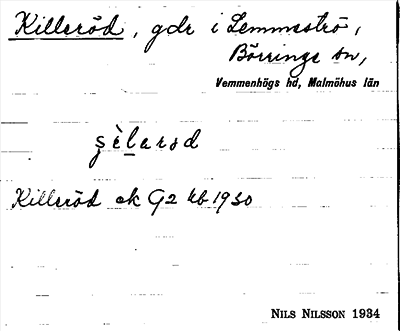 Killeröd, gdr i Lemmeströ,
Börringe sn,
Vemmenhögs hd, Malmöhus län
Killeröd ek G2 Ub 1930
NILS NILSSON 1934